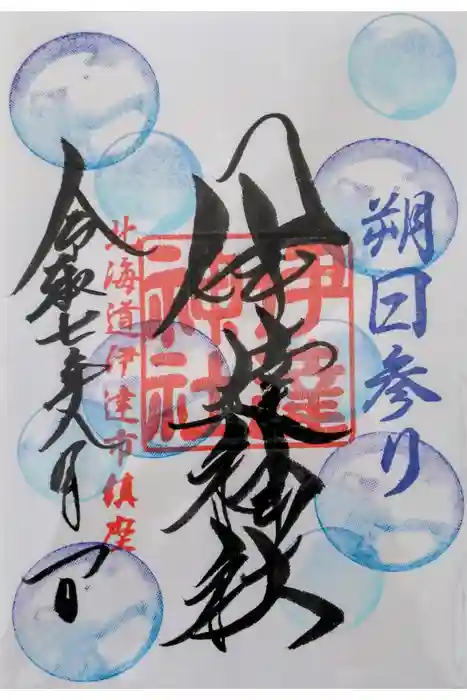 朔日参り
伊達神社
伊達神社
北海道伊達市鎮座
令和七年八月一日